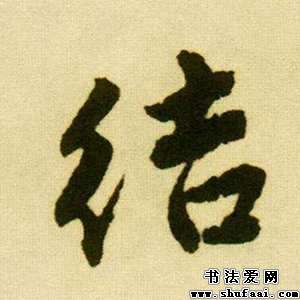 结
书法爱网
www.shufaai.com